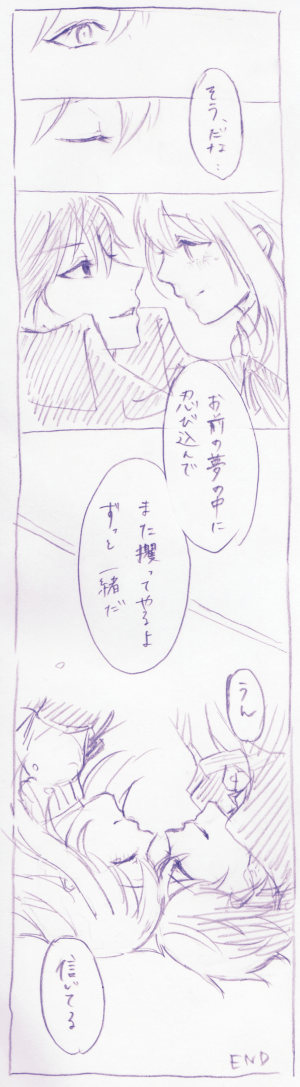 そう、だな…
お前の夢の中に
忍び込んで
また攫ってやるよ
ずっと一緒だ
うん
信じてる
END